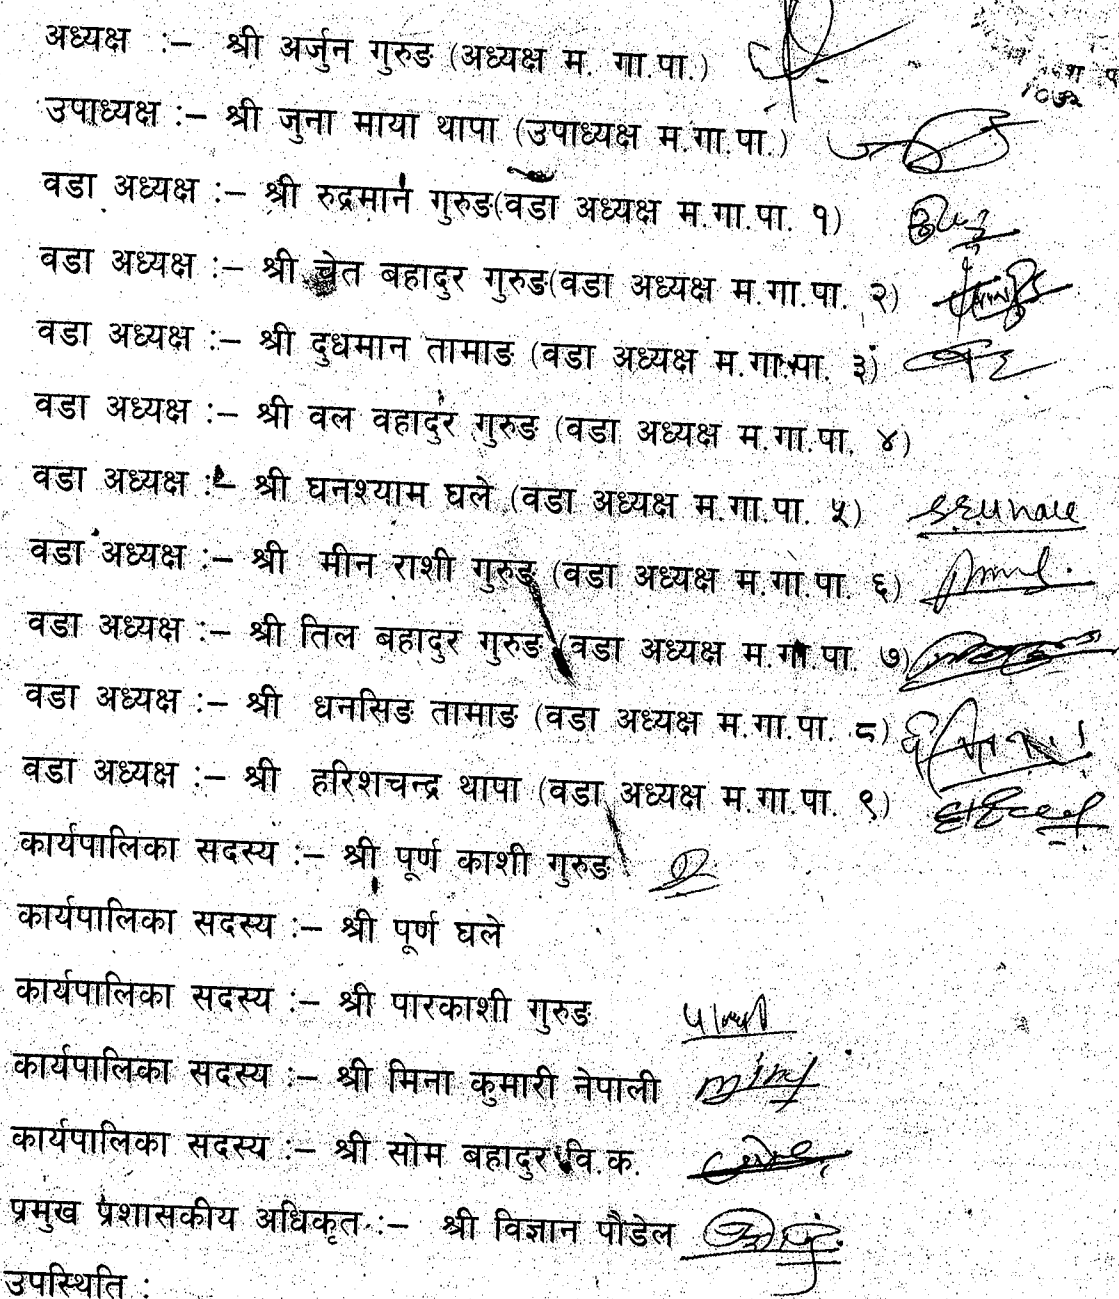 अध्यक्ष :– श्री अर्जुन गुरुङ (अध्यक्ष म. गा.पा.)
उपाध्यक्ष :– श्री जुना माया थापा (उपाध्यक्ष म.गा.पा.)
वडा अध्यक्ष :– श्री रुद्रमान गुरुङ(वडा अध्यक्ष म.गा.पा. १)
वडा अध्यक्ष :– श्री चेत बहादुर गुरुङ(वडा अध्यक्ष म.गा.पा. २)
वडा अध्यक्ष :– श्री दुधमान तामाङ (वडा अध्यक्ष म.गा.पा. ३)
वडा अध्यक्ष :– श्री वल वहादुर गुरुङ (वडा अध्यक्ष म.गा.पा. ४)
वडा अध्यक्ष :– श्री घनश्याम घले (वडा अध्यक्ष म.गा.पा. ५)
वडा अध्यक्ष :– श्री मीन राशी गुरुङ (वडा अध्यक्ष म.गा.पा. ६)
वडा अध्यक्ष :– श्री तिल बहादुर गुरुङ (वडा अध्यक्ष म.गा.पा. ७)
वडा अध्यक्ष :– श्री धनसिङ तामाङ (वडा अध्यक्ष म.गा.पा. ८)
वडा अध्यक्ष :– श्री हरिशचन्द्र थापा (वडा अध्यक्ष म.गा.पा. ९)
कार्यपालिका सदस्य :– श्री पूर्ण काशी गुरुङ
कार्यपालिका सदस्य :– श्री पूर्ण घले
कार्यपालिका सदस्य :– श्री पारकाशी गुरुङ
कार्यपालिका सदस्य :– श्री मिना कुमारी नेपाली
कार्यपालिका सदस्य :– श्री सोम बहादुर वि.क.
प्रमुख प्रशासकीय अधिकृत :– श्री विज्ञान पौडेल
उपस्थिति :